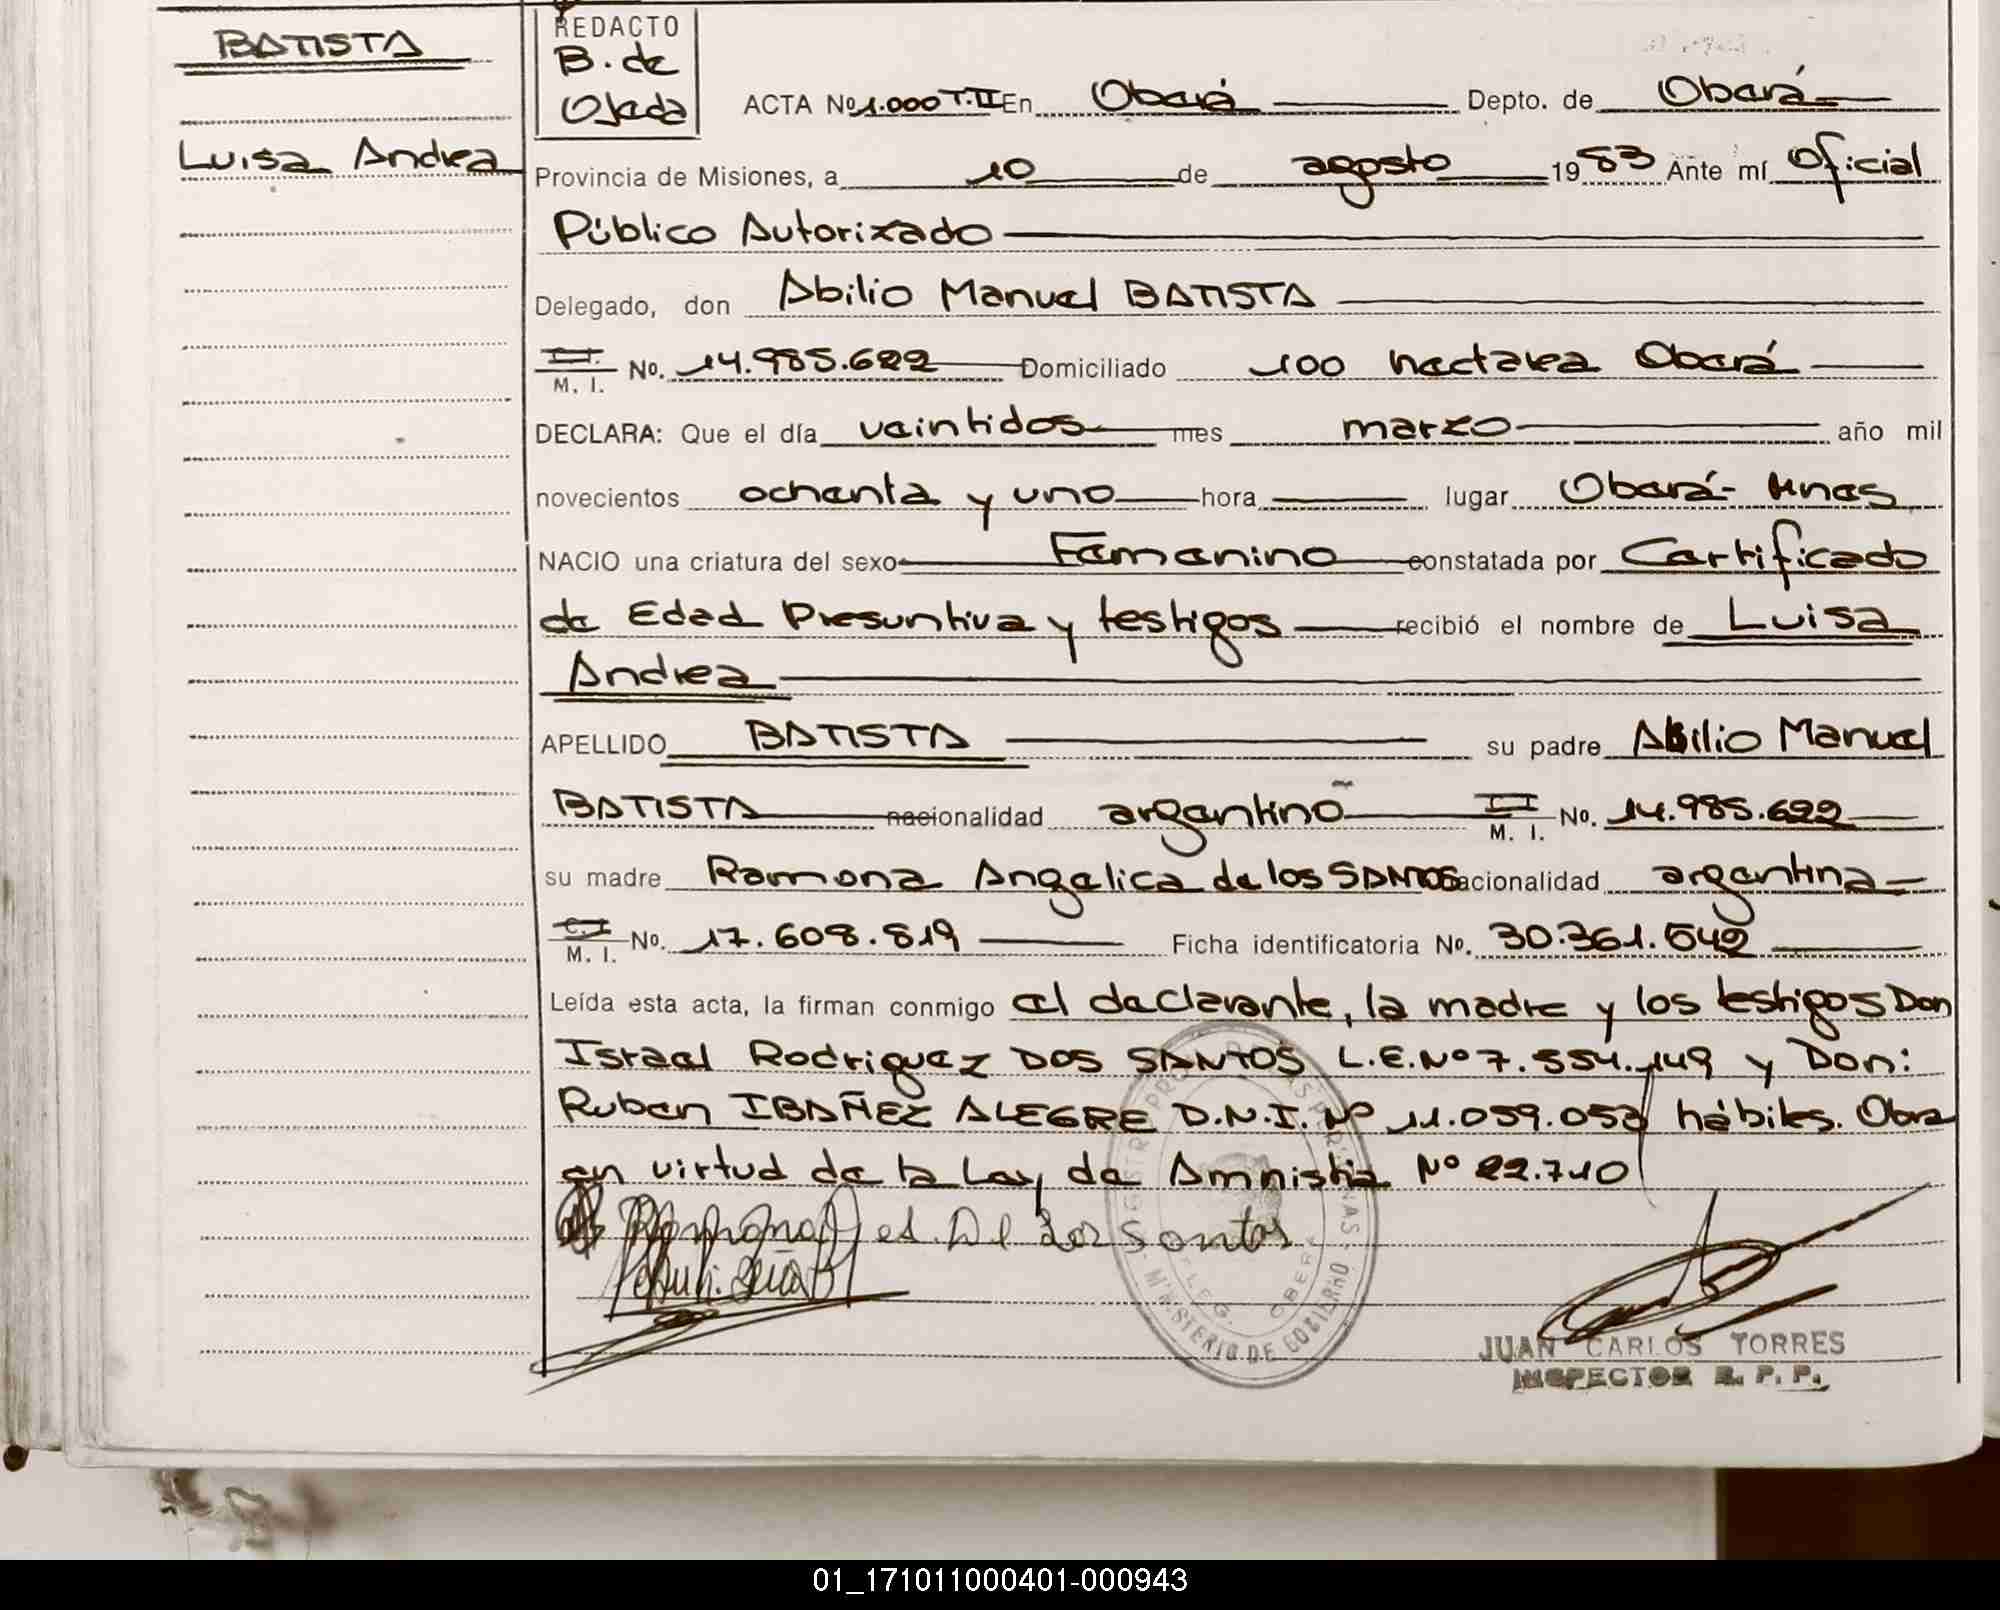 BATISTA
Luisa Andrea
REDACTO
B. de
Ojeda
ACTA Nº 1.000 T.II En Oberá Depto. de Oberá
Provincia de Misiones, a 10 de agosto 1983 Ante mí Oficial
Público Autorizado
Delegado, don Abilio Manuel BATISTA
M. I. No. 14.985.622 Domiciliado 100 hectarea Oberá
DECLARA: Que el día veintidos mes marzo año mil
novecientos ochenta y uno hora lugar Oberá- Mnes
NACIO una criatura del sexo Femenino constatada por Certificado
de Edad Presuntiva y testigos recibió el nombre de Luisa
Andrea
APELLIDO BATISTA su padre Abilio Manuel
BATISTA nacionalidad argentino M. I. No. 14.985.622
su madre Ramona Angelica de los SANTOS nacionalidad argentina
C. I. M. I. No. 17.608.819 Ficha identificatoria No. 30.361.542
Leída esta acta, la firman conmigo el declarante, la madre y los testigos Don
Israel Rodriguez DOS SANTOS L.E. Nº 7.554.149 y Don:
Ruben IBAÑEZ ALEGRE D.N.I. Nº 11.059.053 hábiles. Obra
en virtud de la Ley de Amnistia Nº 22.740
De Los Santos
MINISTERIO DE GOBIERNO
JUAN CARLOS TORRES
INSPECTOR R. P. P.
01_171011000401-000943